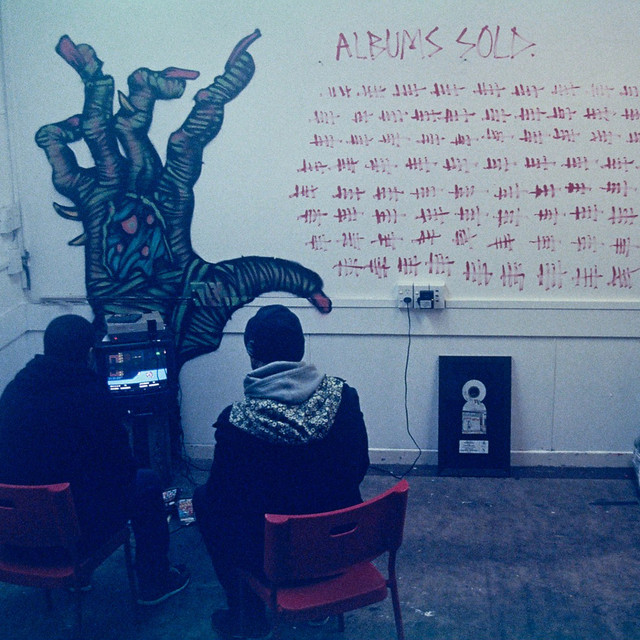 ALBUMS SOLD